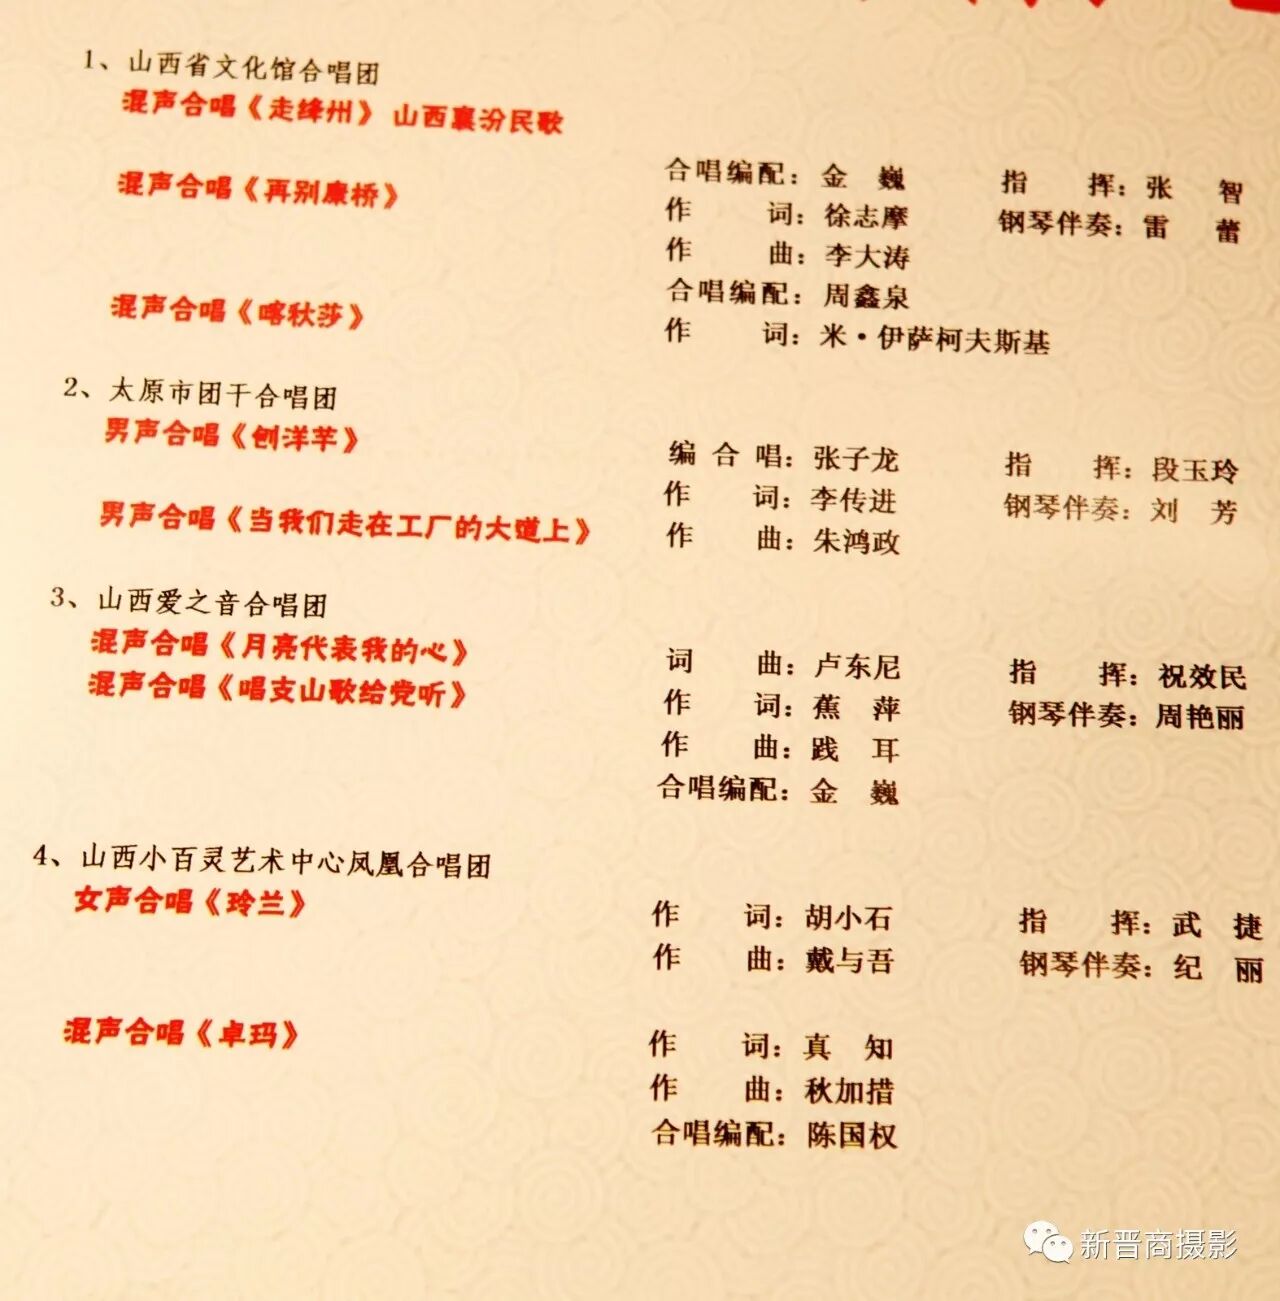 1、山西省文化馆合唱团
混声合唱《走绛州》 山西襄汾民歌
合唱编配：金 巍 指 挥：张 智
混声合唱《再别康桥》 作 词：徐志摩 钢琴伴奏：雷 蕾
作 曲：李大涛
合唱编配：周鑫泉
混声合唱《喀秋莎》 作 词：米·伊萨柯夫斯基
2、太原市团干合唱团
男声合唱《刨洋芋》 编 合 唱：张子龙 指 挥：段玉玲
作 词：李传进 钢琴伴奏：刘 芳
男声合唱《当我们走在工厂的大道上》 作 曲：朱鸿政
3、山西爱之音合唱团
混声合唱《月亮代表我的心》 词 曲：卢东尼 指 挥：祝效民
混声合唱《唱支山歌给党听》 作 词：蕉 萍 钢琴伴奏：周艳丽
作 曲：践 耳
合唱编配：金 巍
4、山西小百灵艺术中心凤凰合唱团
女声合唱《玲兰》 作 词：胡小石 指 挥：武 捷
作 曲：戴与吾 钢琴伴奏：纪 丽
混声合唱《卓玛》 作 词：真 知
作 曲：秋加措
合唱编配：陈国权
新晋商摄影